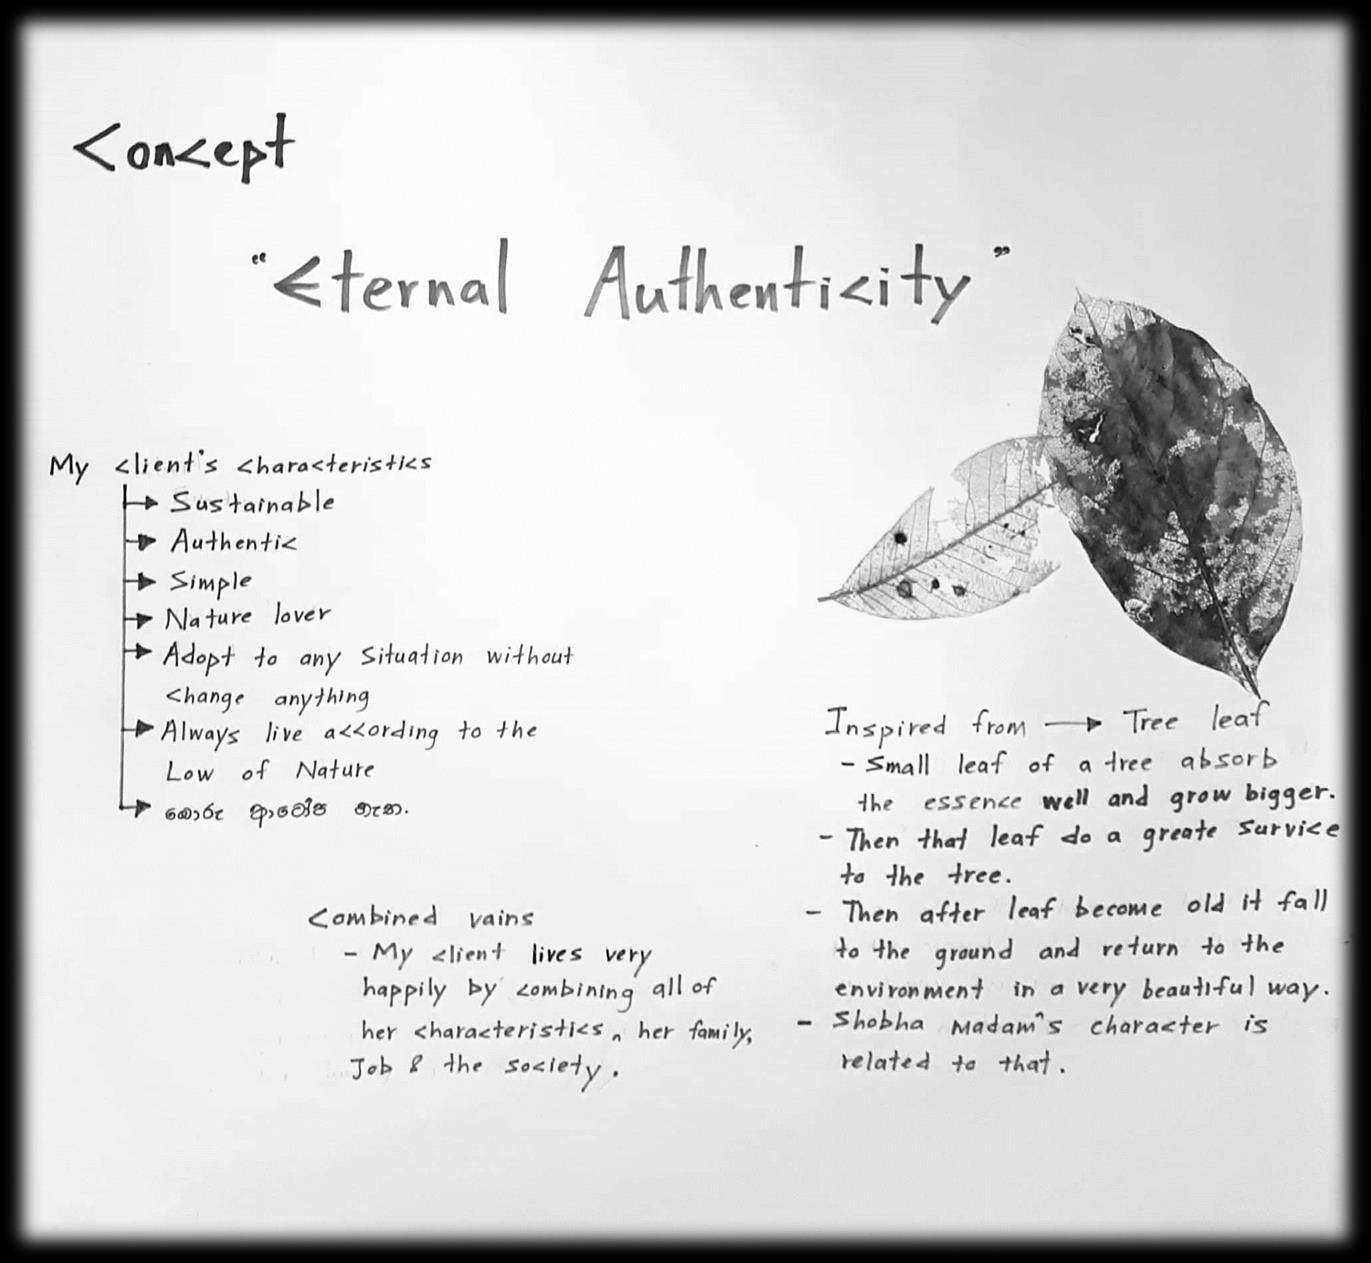 Concept
"Eternal Authenticity"
My client's characteristics
Sustainable
Authentic
Simple
Nature lover
Adopt to any Situation without
change anything
Always live according to the
Low of Nature
නැත.
Combined vains
- My client lives very
happily by combining all of
her characteristics, her family,
Job & the society.
Inspired from → Tree leaf
- Small leaf of a tree absorb
the essence well and grow bigger.
- Then that leaf do a greate survice
to the tree.
- Then after leaf become old it fall
to the ground and return to the
environment in a very beautiful way.
- Shobha Madam's character is
related to that.